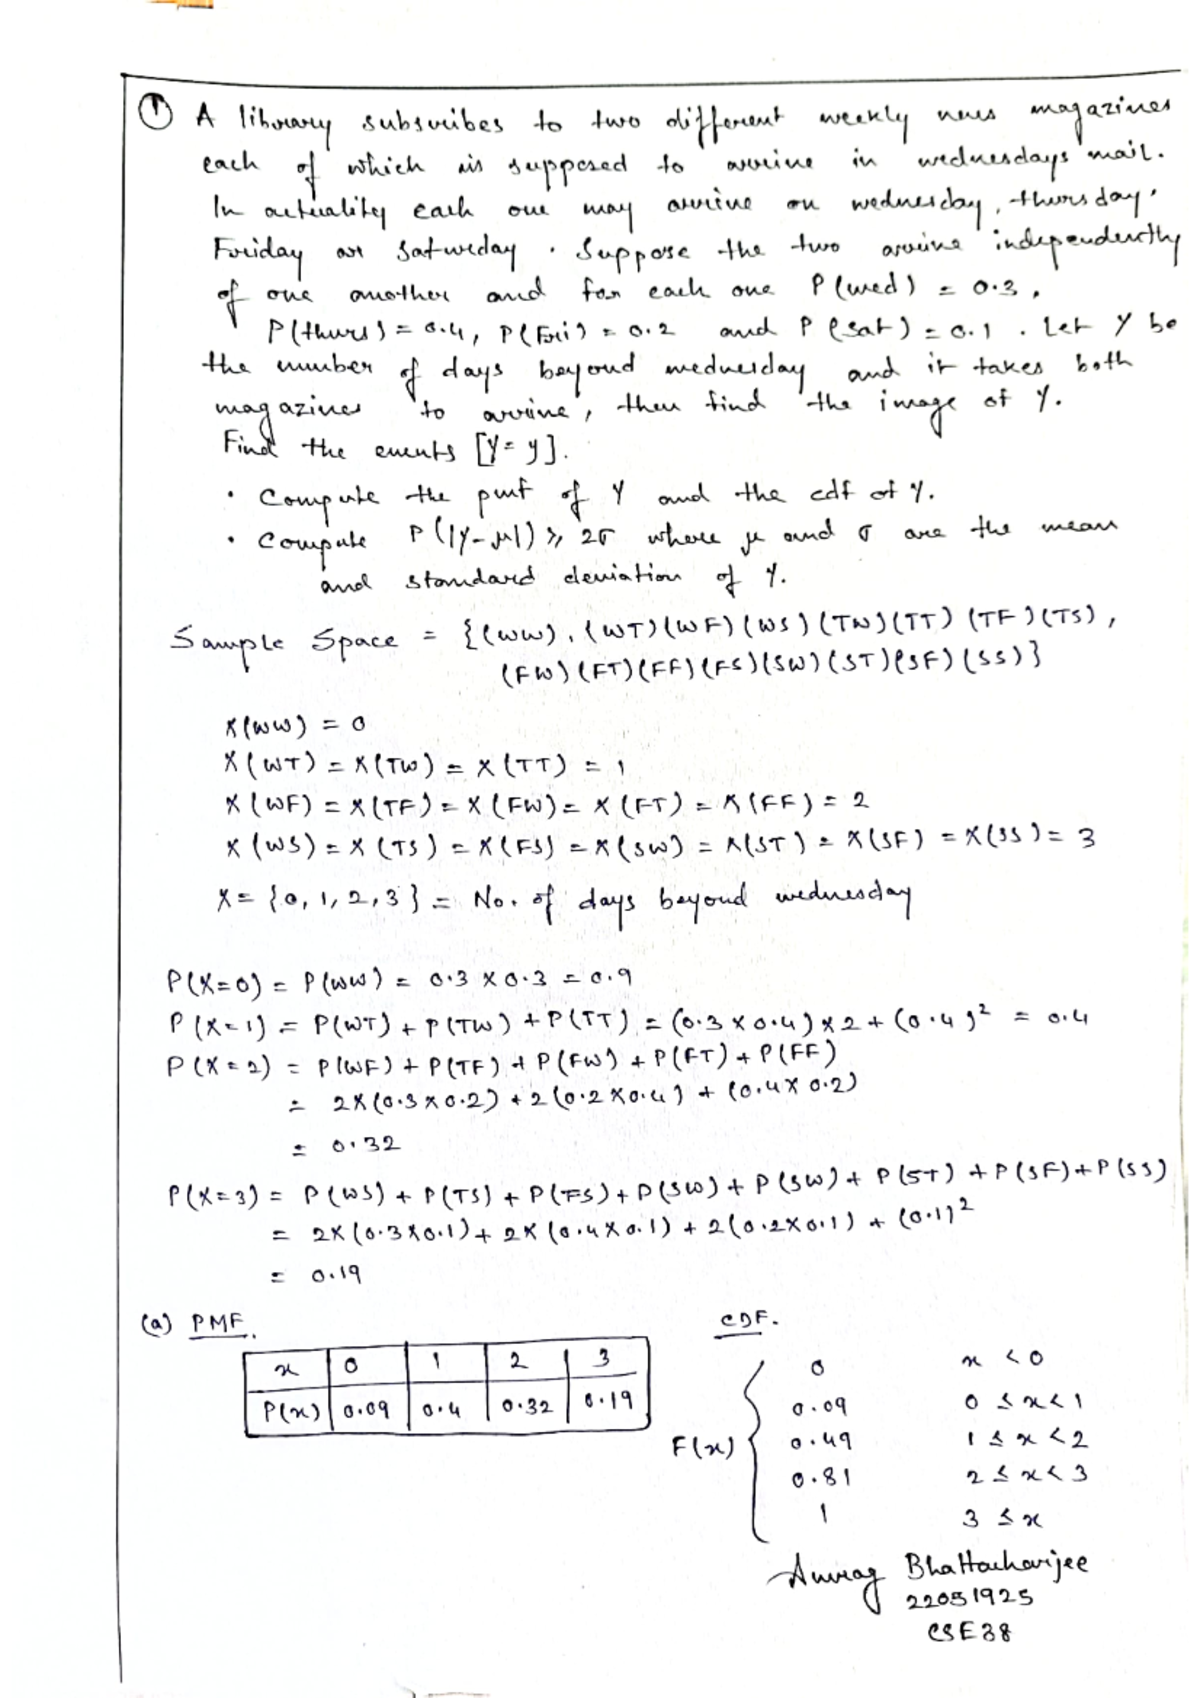 ① A library subscribes to two different weekly news magazines
each of which is supposed to arrive in wednesdays mail.
In actuality each one may arrive on wednesday, thursday,
Friday or saturday. Suppose the two arrive independently
of one another and for each one P(wed) = 0.3,
P(thurs) = 0.4, P(Fri) = 0.2 and P(sat) = 0.1. Let Y be
the number of days beyond wednesday and it takes both
magazines to arrive, then find the image of Y.
Find the events [Y = y].
• Compute the pmf of Y and the cdf of Y.
• Compute P(|Y-μ|) ≥ 2σ where μ and σ are the mean
and standard deviation of Y.
Sample Space = {(WW), (WT)(WF)(WS)(TW)(TT)(TF)(TS),
(FW)(FT)(FF)(FS)(SW)(ST)(SF)(SS)}
X(WW) = 0
X(WT) = X(TW) = X(TT) = 1
X(WF) = X(TF) = X(FW) = X(FT) = X(FF) = 2
X(WS) = X(TS) = X(FS) = X(SW) = X(ST) = X(SF) = X(SS) = 3
X = {0, 1, 2, 3} = No. of days beyond wednesday
P(X=0) = P(WW) = 0.3 x 0.3 = 0.9
P(X=1) = P(WT) + P(TW) + P(TT) = (0.3 x 0.4) x 2 + (0.4)² = 0.4
P(X=2) = P(WF) + P(TF) + P(FW) + P(FT) + P(FF)
= 2x(0.3 x 0.2) + 2(0.2 x 0.4) + (0.4 x 0.2)
= 0.32
P(X=3) = P(WS) + P(TS) + P(FS) + P(SW) + P(SW) + P(ST) + P(SF) + P(SS)
= 2x(0.3x0.1) + 2x(0.4x0.1) + 2(0.2x0.1) + (0.1)²
= 0.19
(a) PMF.
x 0 1 2 3
P(x) 0.09 0.4 0.32 0.19
CDF.
0 x < 0
0.09 0 ≤ x < 1
F(x) 0.49 1 ≤ x < 2
0.81 2 ≤ x < 3
1 3 ≤ x
Anurag Bhattacharjee
22051925
CSE 38